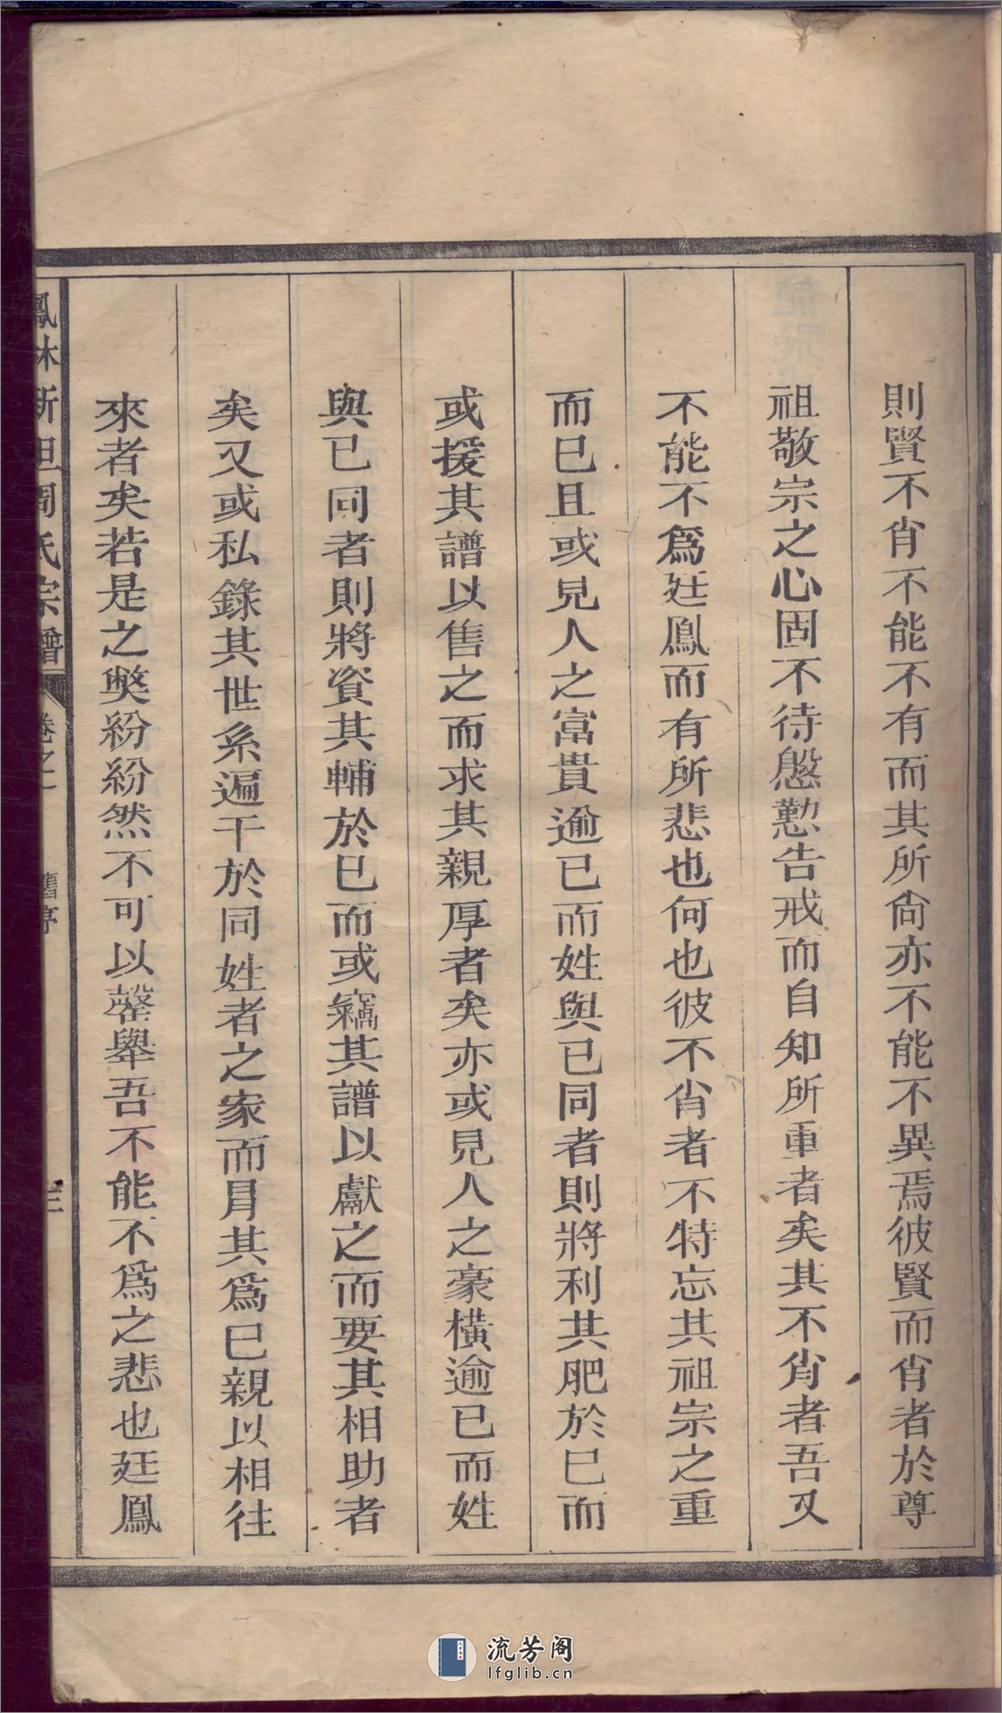 則賢不肖不能不有而其所尙亦不能不異焉彼賢而肖者於尊
祖敬宗之心固不待慇懃告戒而自知所重者矣其不肖者吾又
不能不爲廷鳳而有所悲也何也彼不肖者不特忘其祖宗之重
而已且或見人之富貴逾已而姓與已同者則將利其肥於已而
或援其譜以售之而求其親厚者矣亦或見人之豪橫逾已而姓
與已同者則將資其輔於已而或竊其譜以獻之而要其相助者
矣又或私錄其世系遍干於同姓者之家而冐其爲已親以相往
來者矣若是之獘紛紛然不可以罄舉吾不能不爲之悲也廷鳳
鳳林新坦周氏宗譜 卷之一 舊序 三
流芳阁
lfglib.cn